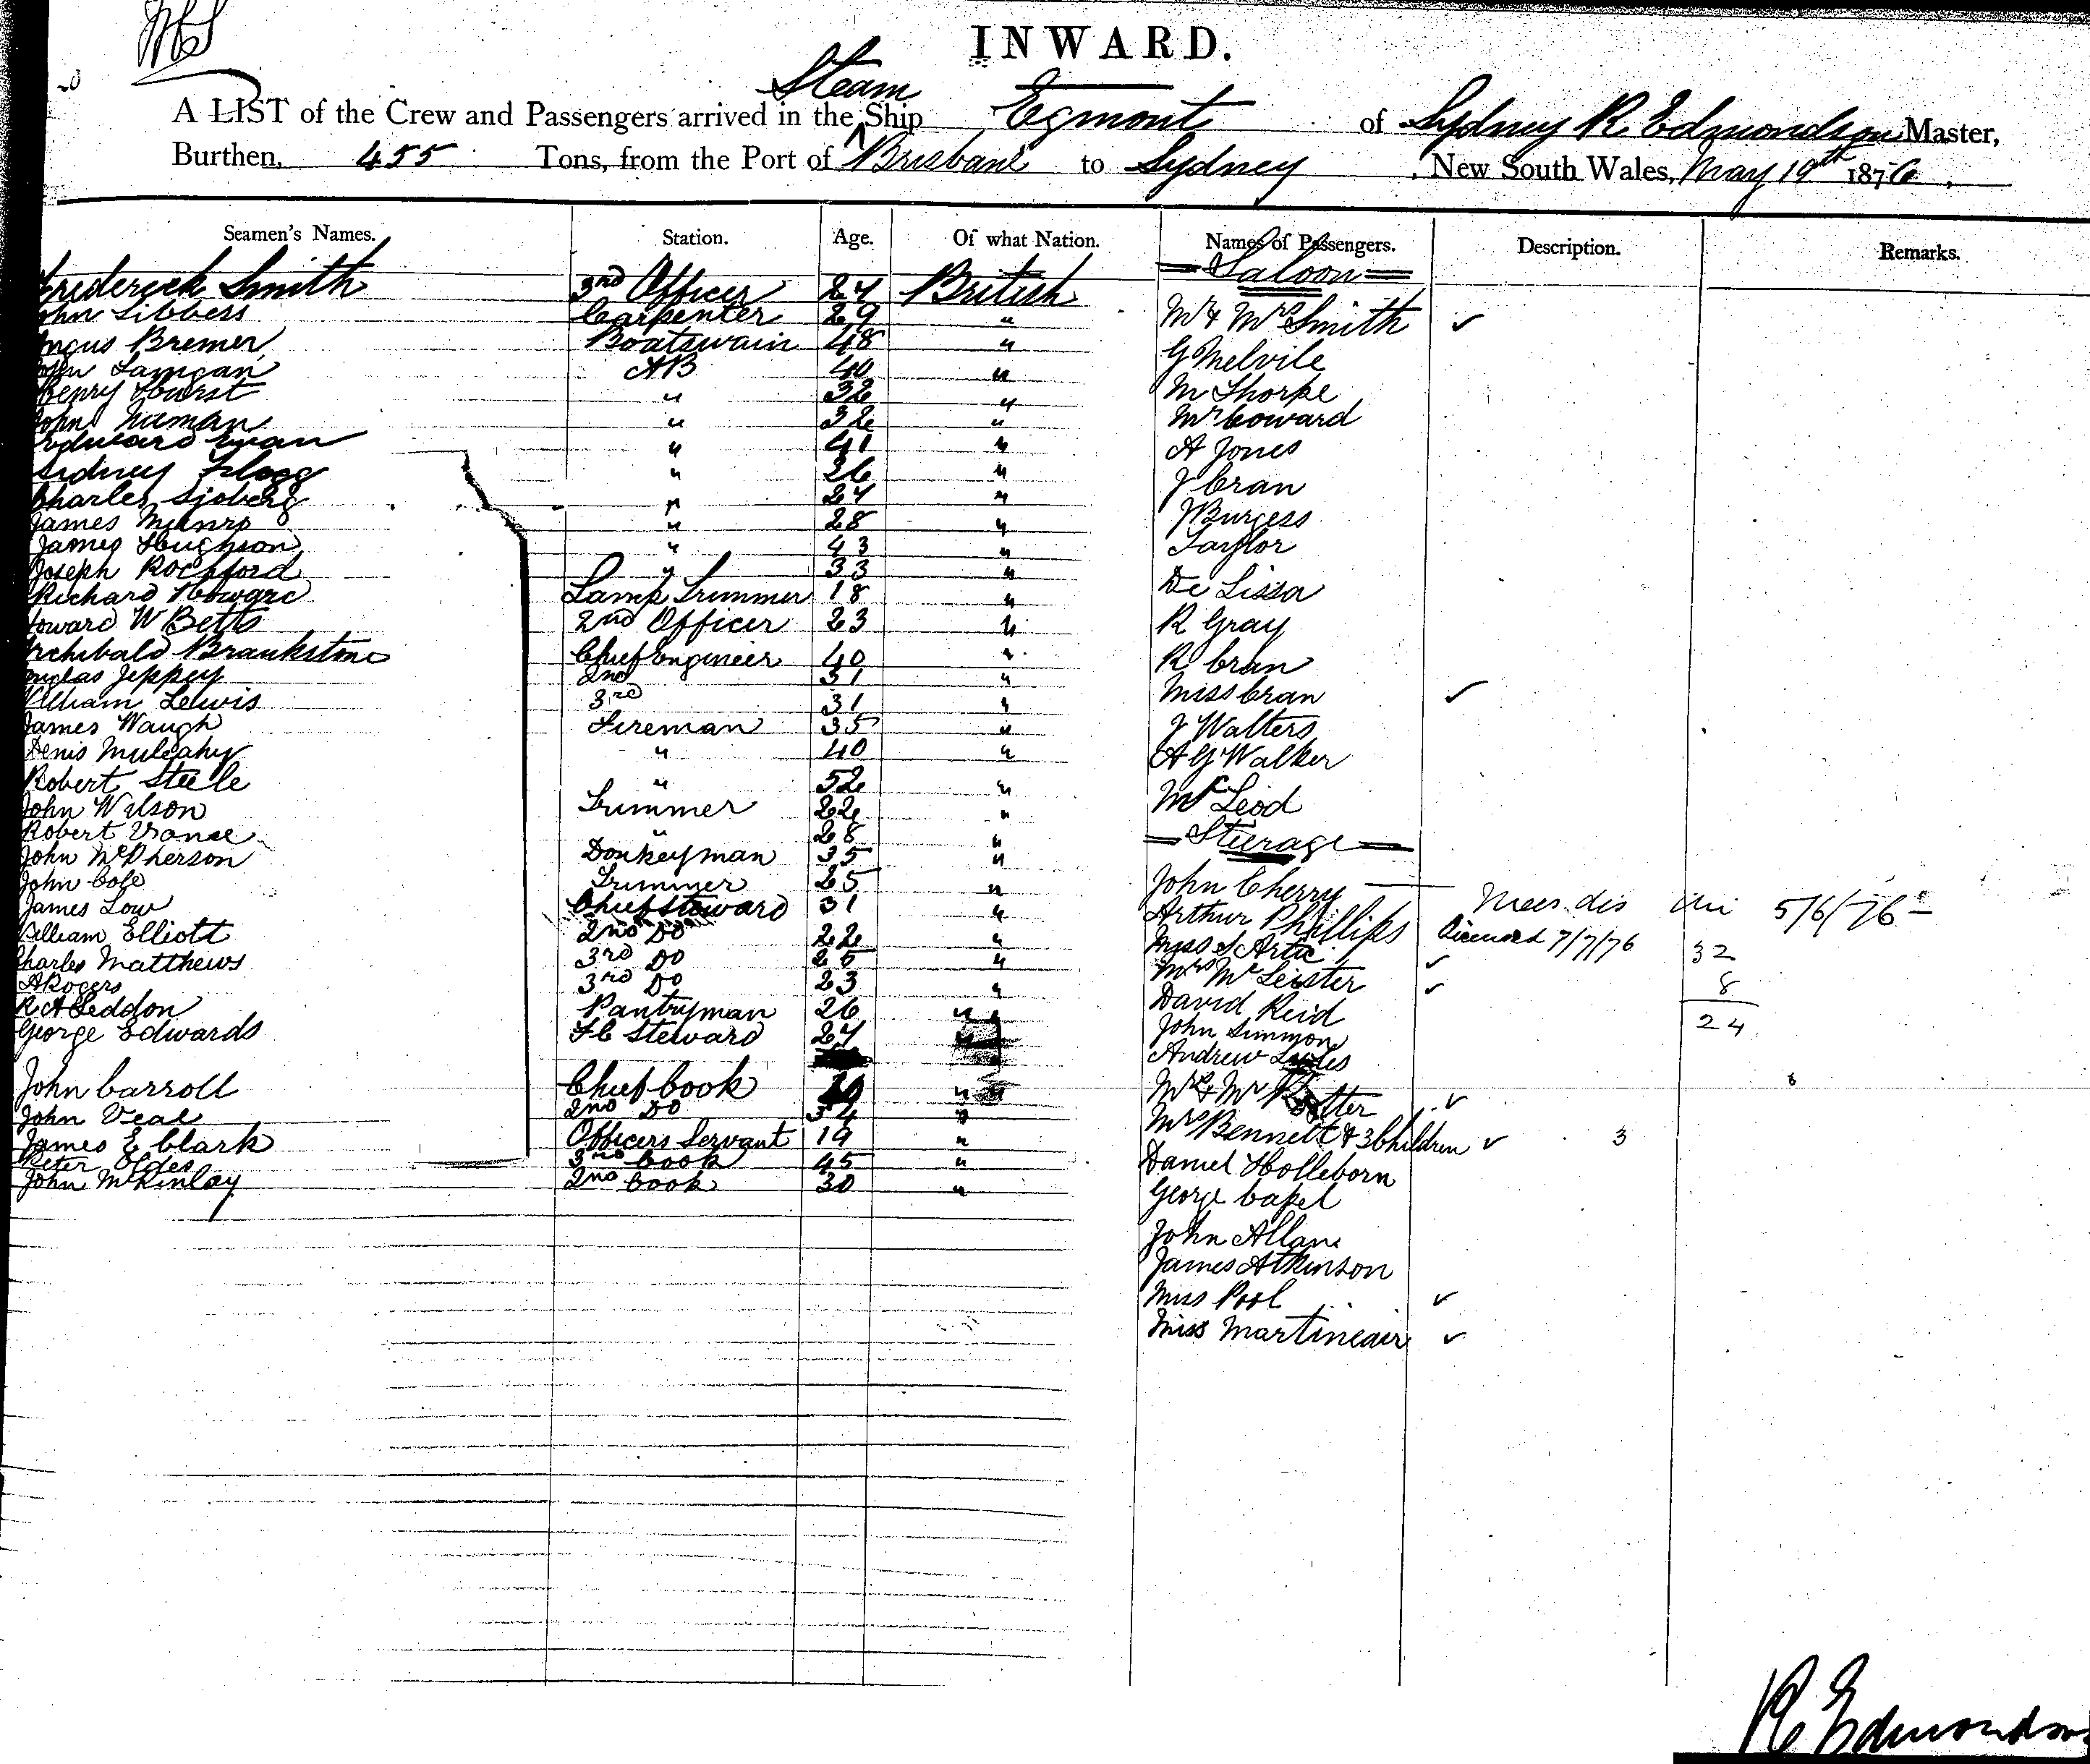 INWARD.
Steam
A LIST of the Crew and Passengers arrived in the Ship Egmont of Sydney R Edmondson Master,
Burthen, 455 Tons, from the Port of Brisbane to Sydney, New South Wales, May 19th 1876,
Seamen's Names. Station. Age. Of what Nation. Names of Passengers. Description. Remarks.
Saloon
Frederick Smith 3rd Officer 27 British
John Carpenter 29 "
Mr & Mrs Smith ✓
Angus Bremer Boatswain 48 "
G Melvile
John Lanigan AB 40 "
Henry Hurst " 32 "
M Thorpe
John " 32 "
Mr Coward
Edward " 41 "
A Jones
Sidney " 26 "
J Cran
Charles Sjoberg " 27 "
James Munro " 28 "
J Burgess
James Hughson " 43 "
Taylor
Joseph Rochford " 33 "
Richard Howard Lamp Trimmer 18 "
De Lissa
Howard W Betts 2nd Officer 23 "
R Gray
Archibald Brankstone Chief Engineer 40 "
R Cran
Douglas Jeppey 2nd 31 "
William Lewis 3rd 31 "
Miss Cran ✓
James Waugh Fireman 35 "
J Walters
Denis Mulcahy " 40 "
A G Walker
Robert Steele " 52 "
John Wilson Trimmer 22 "
McLeod
Robert Vance " 28 "
Steerage
John McPherson Donkeyman 35 "
John Cole Trimmer 25 "
John Cherry 5/6/76
James Low Chief Steward 31 "
Arthur Phillips 7/7/76 32
William Elliott 2nd Do 22 "
Miss S ✓
Charles Matthews 3rd Do 25 "
Mrs McLeister ✓ 8
A Rogers 3rd Do 23 "
David Reid
R A Seddon Pantryman 26 "
John Simmon 24
George Edwards F C Steward 27 "
Andrew
John Carroll Chief Cook "
Mrs & Mr ✓
John Veal 2nd Do 34 "
Mrs Bennett & 3 Children ✓ 3
James E Clark Officers Servant 19 "
Peter 3rd Cook 45 "
Daniel Holleborn
John McKinlay 2nd Cook 30 "
George Capel
John Allan
James Atkinson
Miss Pool ✓
Miss Martineair ✓
R Edmondson